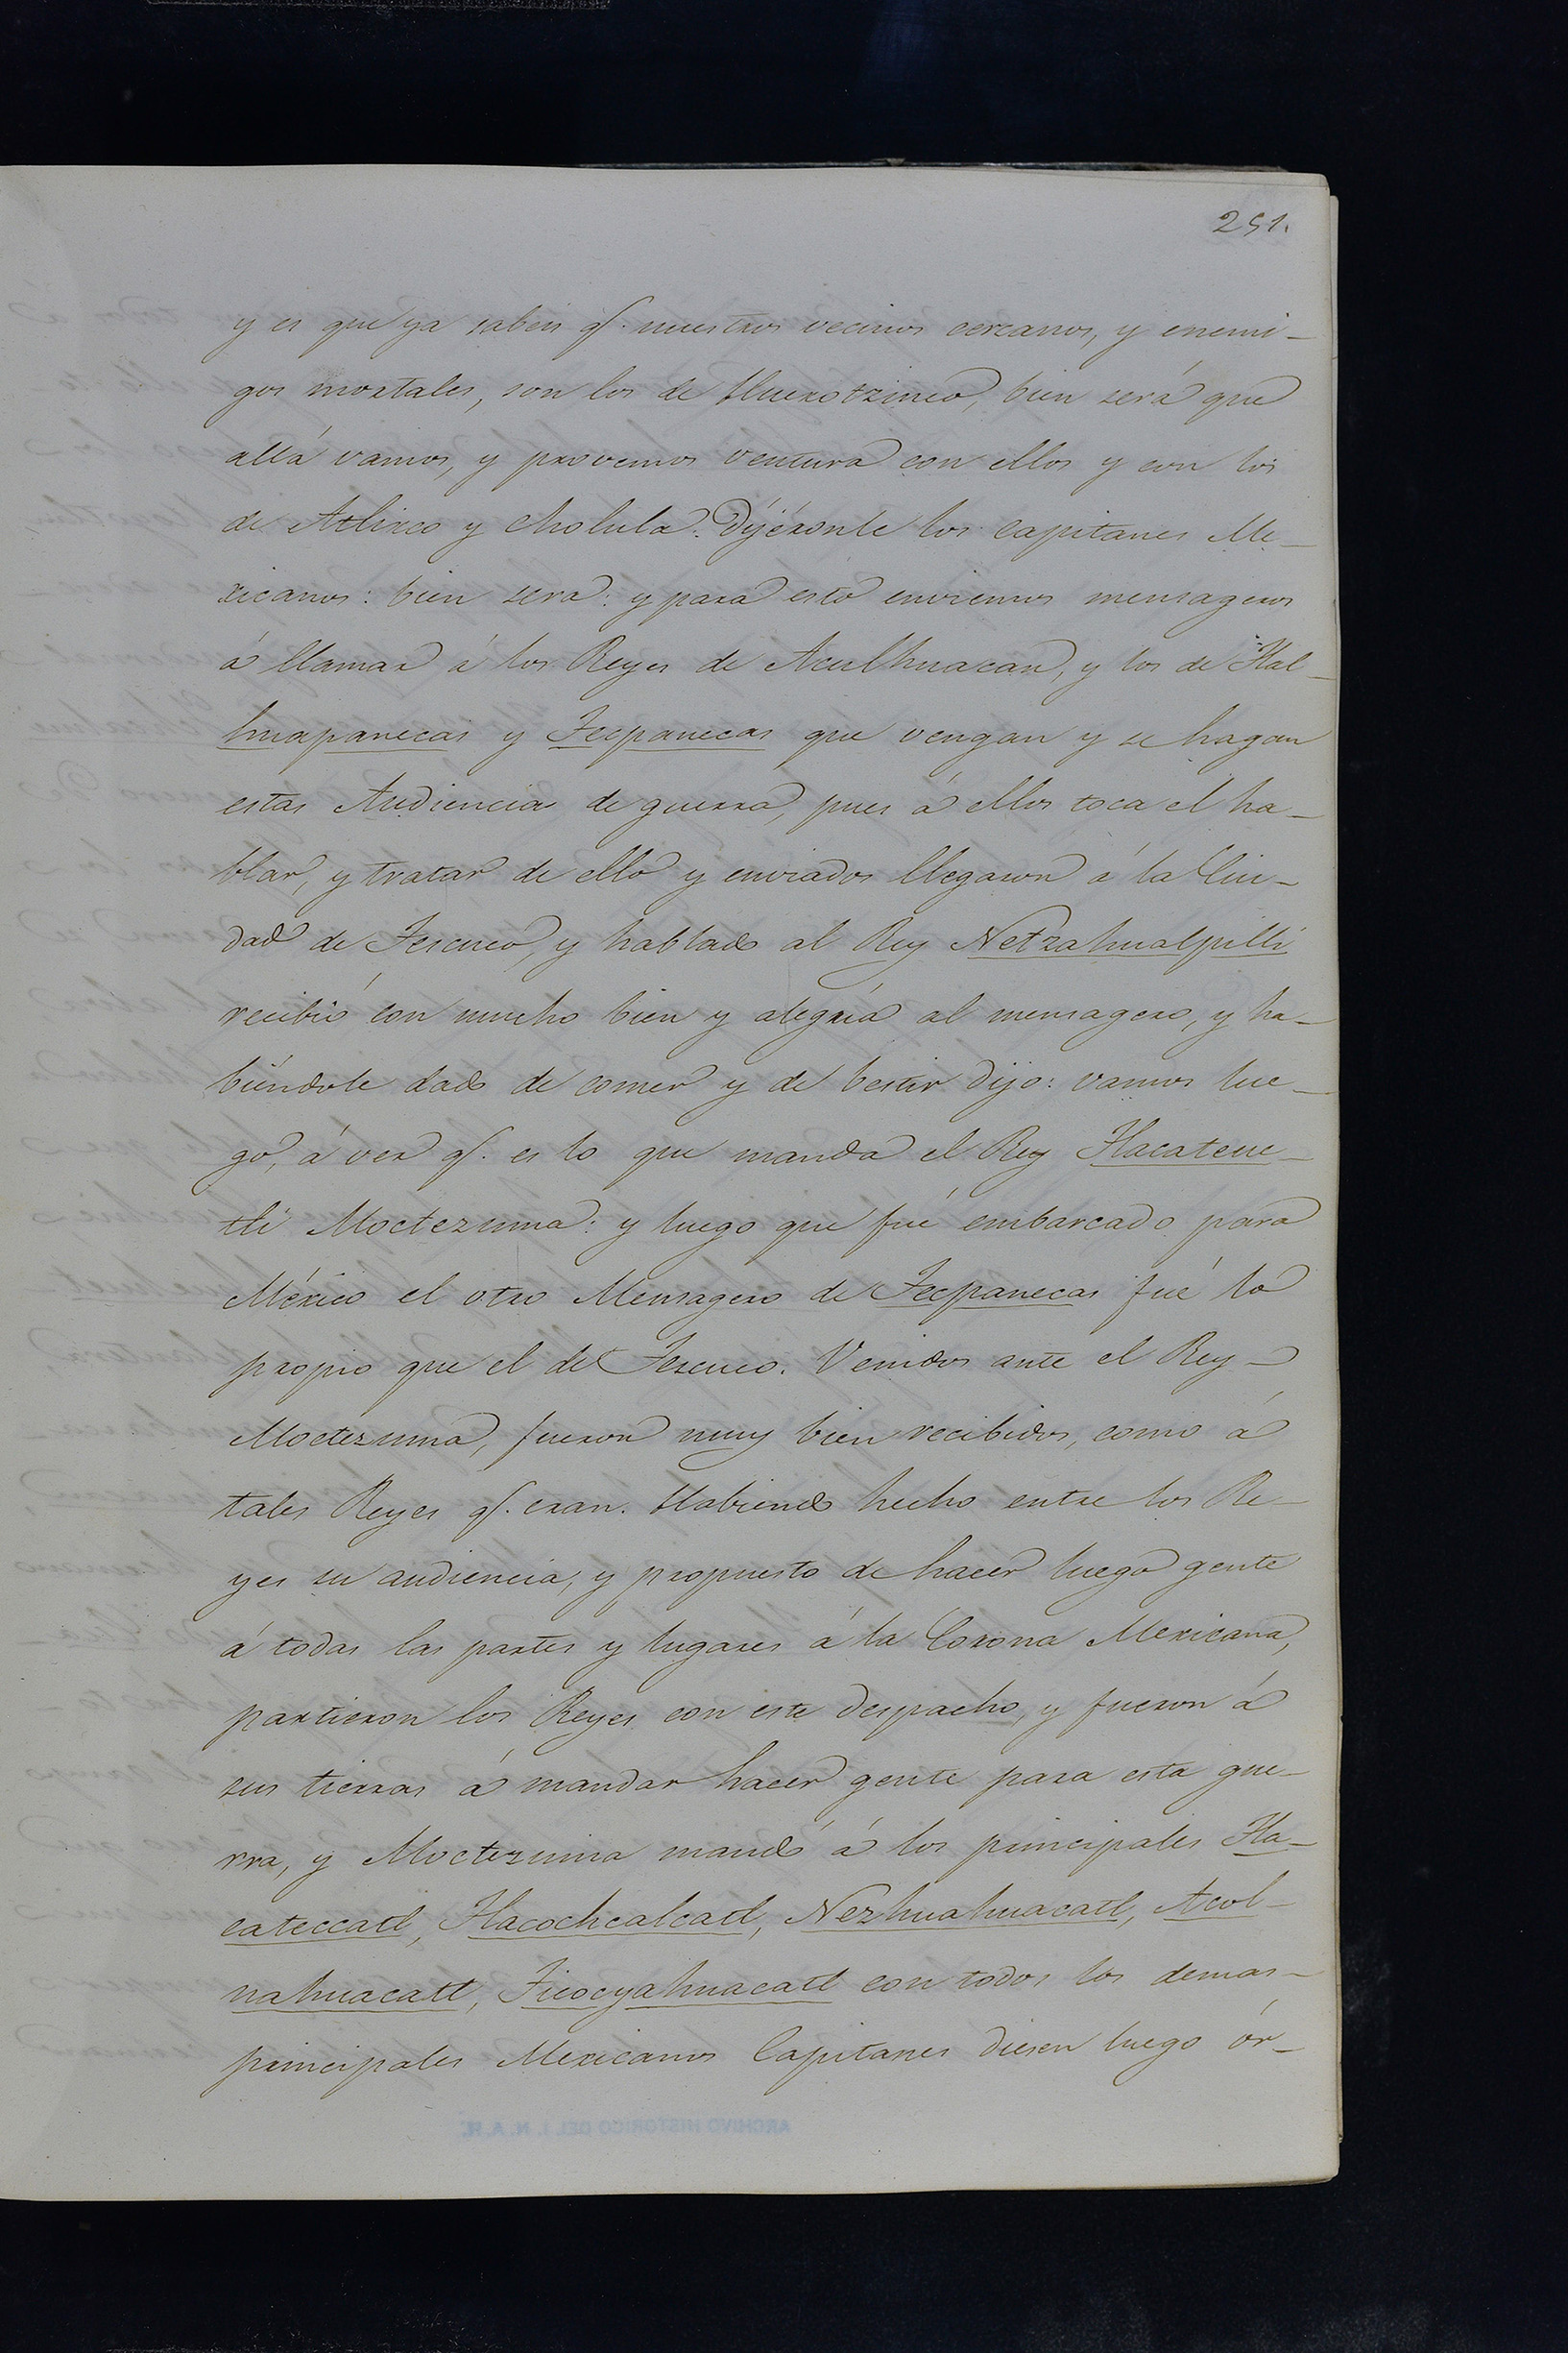 251.
y es que ya sabeis q.e nuestros vecinos cercanos, y enemi-
gos mortales, son los de Huexotzinco, bien será que
allá vamos, y provemos ventura con ellos y con los
de Atlixco y Cholula. Dijéronle los Capitanes Me-
xicanos: bien sera: y para esto enviemos mensageros
á llamar á los Reyes de Aculhuacan, y los de Tlal-
huapanecas y Tecpanecas que vengan y se hagan
estas Audiencias de guerra, pues á ellos toca el ha-
blar, y tratar de ello y enviados llegaron á la Ciu-
dad de Tescuco, y hablado al Rey Netzahualpilli
recibió con mucho bien y alegria al mensagero, y ha-
biéndole dado de comer y de bestir dijo: vamos lue-
go, á ver q.e es lo que manda el Rey Tlacateuc-
tli Moctezuma: y luego que fué embarcado para
México el otro Mensagero de Tecpanecas fué lo
propio que el de Tezcuco. Venidos ante el Rey-
Moctezuma, fueron muy bien recibidos, como á
tales Reyes q.e eran. Habiendo hecho entre los Re-
yes su audiencia, y propuesto de hacer luego gente
á todas las partes y lugares á la Corona Mexicana,
partieron los Reyes con este despacho, y fueron á
sus tierras á mandar hacer gente para esta gue-
rra, y Moctezuma mandó á los principales Tla-
cateccatl, Tlacochcalcatl, Nezhuahuacatl, Acol-
nahuacatl, Ticocyahuacatl con todos los demas-
principales Mexicanos Capitanes diesen luego ór-
ARCHIVO HISTORICO DEL I. N. A. H.